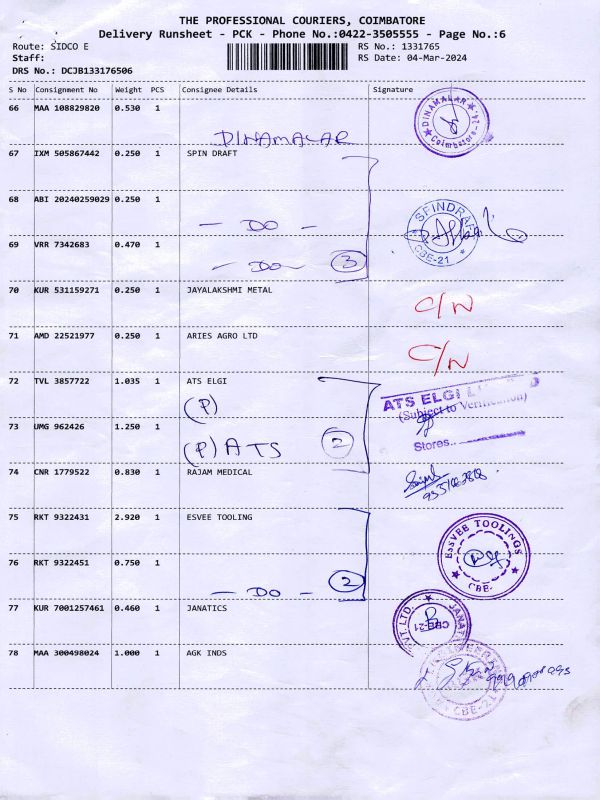 THE PROFESSIONAL COURIERS, COIMBATORE
Delivery Runsheet - PCK - Phone No.:0422-3505555 - Page No.:6
Route: SIDCO E
RS No.: 1331765
Staff:
RS Date: 04-Mar-2024
DRS No.: DCJB133176506
S No Consignment No Weight PCS Consignee Details Signature
66 MAA 108829820 0.530 1
DINAMALAR
DINAMALAR
Coimbatore
67 IXM 505867442 0.250 1 SPIN DRAFT
68 ABI 20240259029 0.250 1
- DO -
SPINDRAFT
CBE-21
69 VRR 7342683 0.470 1
- DO - 3
70 KUR 531159271 0.250 1 JAYALAKSHMI METAL
C/N
71 AMD 22521977 0.250 1 ARIES AGRO LTD
C/N
72 TVL 3857722 1.035 1 ATS ELGI
(P)
ATS ELGI
(Subject to Verification)
Stores..
73 UMG 962426 1.250 1
(P) ATS 2
74 CNR 1779522 0.830 1 RAJAM MEDICAL
75 RKT 9322431 2.920 1 ESVEE TOOLING
ESSVEE TOOLINGS
CBE-
76 RKT 9322451 0.750 1
- DO - 2
77 KUR 7001257461 0.460 1 JANATICS
PVT.LTD.
CBE-21
78 MAA 300498024 1.000 1 AGK INDS
CBE-21